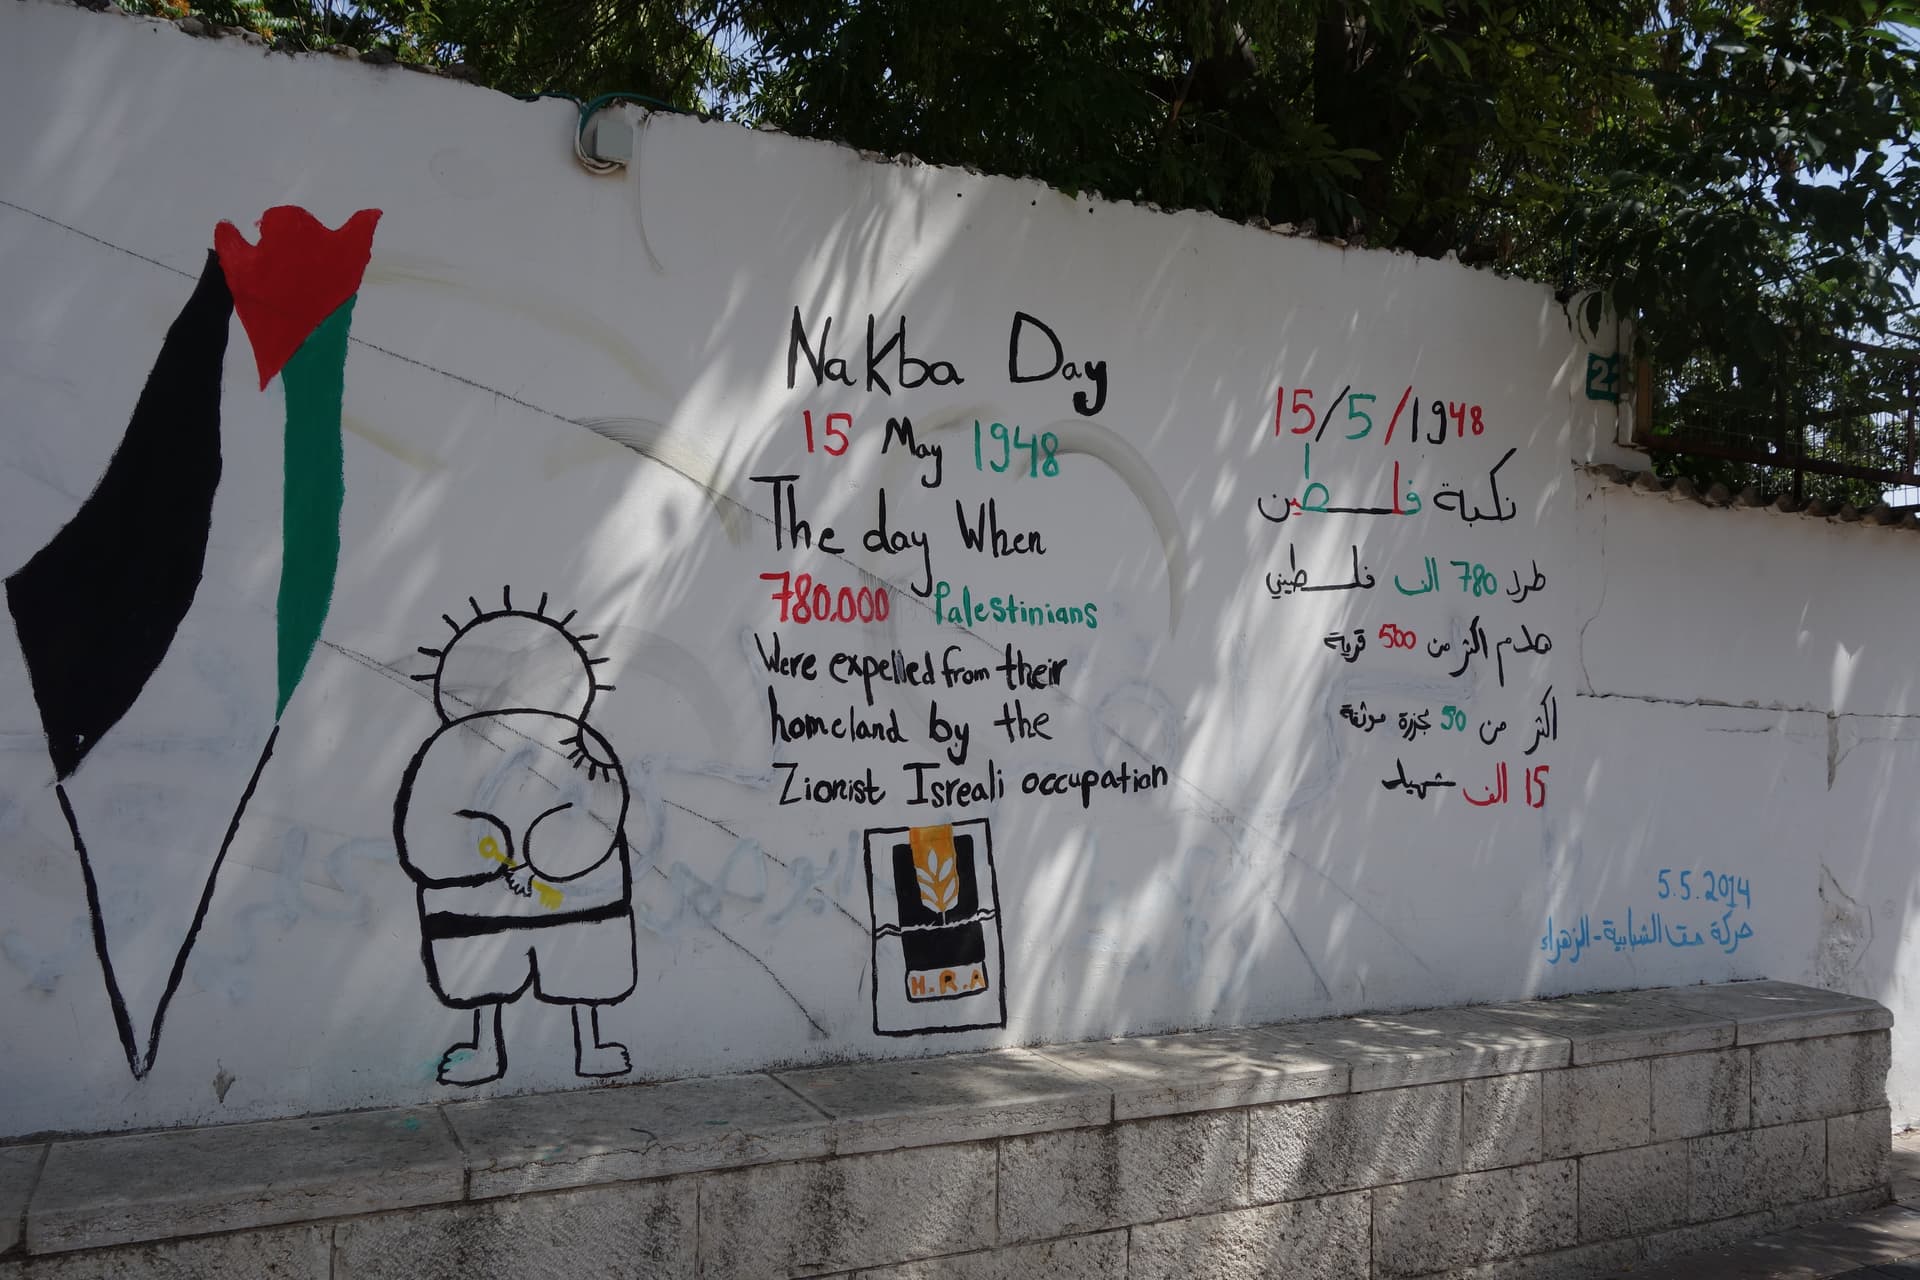 Nakba Day
15 May 1948
The day When
780.000 Palestinians
Were expelled from their
homeland by the
Zionist Isreali occupation
H.R.A
15/5/1948
نكبة فلسطين
طرد 780 الف فلسطيني
هدم اكثر من 500 قرية
اكثر من 50 مجزرة موثقة
15 الف شهيد
5.5.2014
حركة حق الشبابية - الزهراء
22